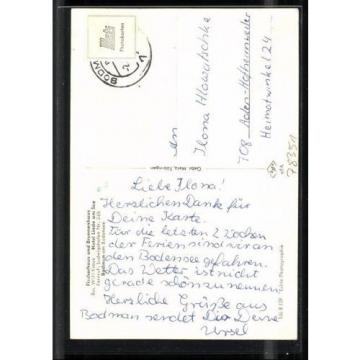 BODM
An
Ilona Hlowatschke
708 Aalen-Hofherrnweiler
Heimatwinkel 24
78351
Liebe Ilona!
Herzlichen Dank für
Deine Karte.
Für die letzten 2 Wochen
der Ferien sind wir an
den Bodensee gefahren.
Das Wetter ist nicht
gerade schön zu nennen.
Herzliche Grüße aus
Bodman sendet Dir Deine
Ursel
Fischerhaus und Sommerhaus
Hotel Linde am See
Bodman am Bodensee
Gebr. Metz, Tübingen
Echte Photographie